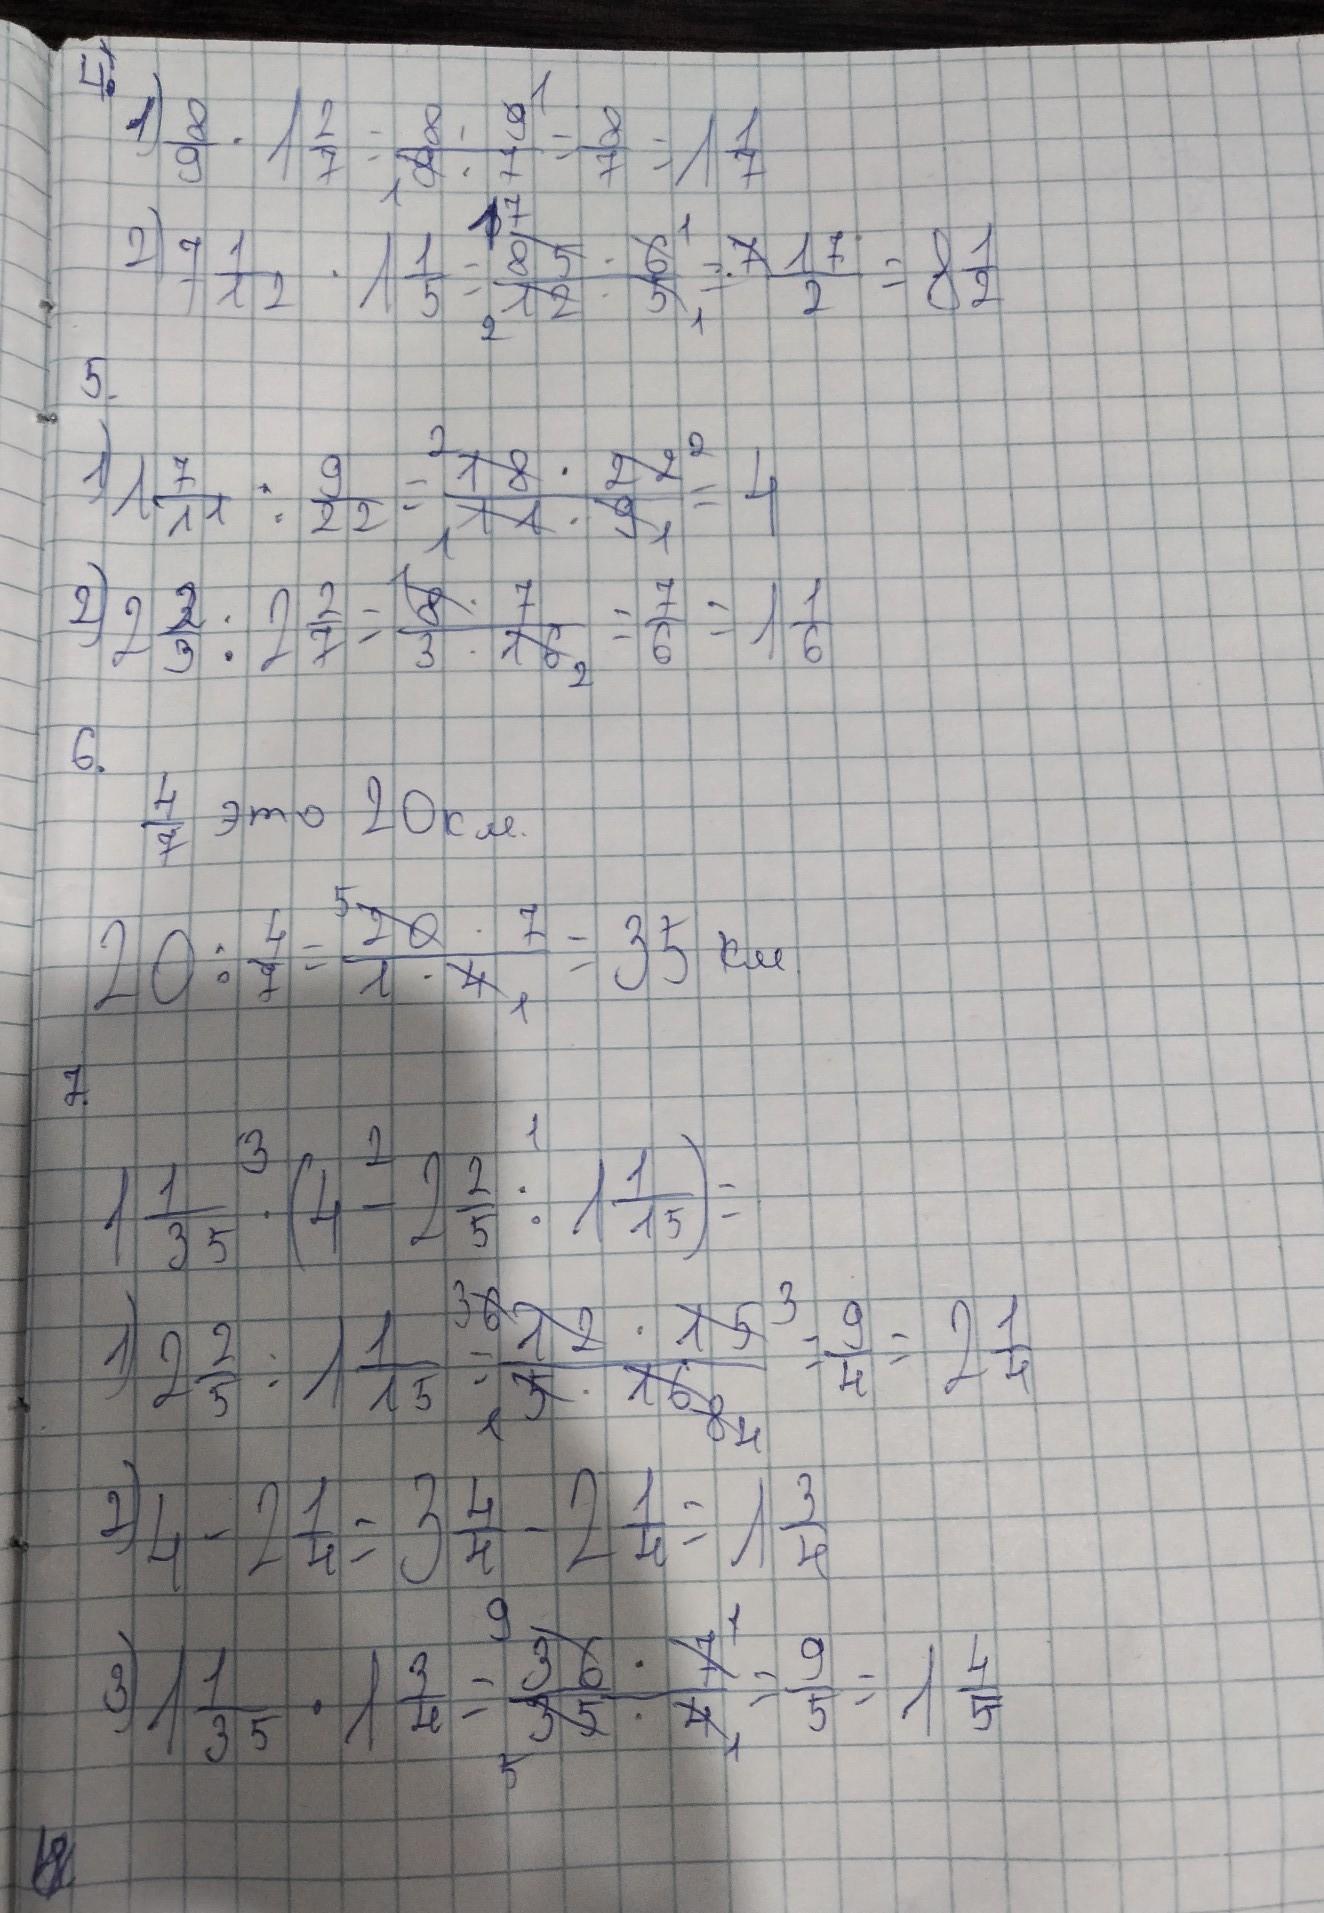 4.
1) 8/9 · 1 2/7 = 8 · 9/9 · 7 = 8/7 = 1 1/7
2) 7 1/12 · 1 1/5 = 85 · 6/12 · 5 = 17/2 = 8 1/2
5.
1) 1 7/11 : 9/22 = 18 · 22/11 · 9 = 4
2) 2 2/3 : 2 2/7 = 8 · 7/3 · 16 = 7/6 = 1 1/6
6.
4/7 это 20 км.
20 : 4/7 = 20 · 7/1 · 4 = 35 км
7.
1 1/35 · (4 - 2 2/5 : 1 1/15) =
1) 2 2/5 : 1 1/15 = 12 · 15/5 · 16 = 9/4 = 2 1/4
2) 4 - 2 1/4 = 3 4/4 - 2 1/4 = 1 3/4
3) 1 1/35 · 1 3/4 = 36 · 7/35 · 4 = 9/5 = 1 4/5